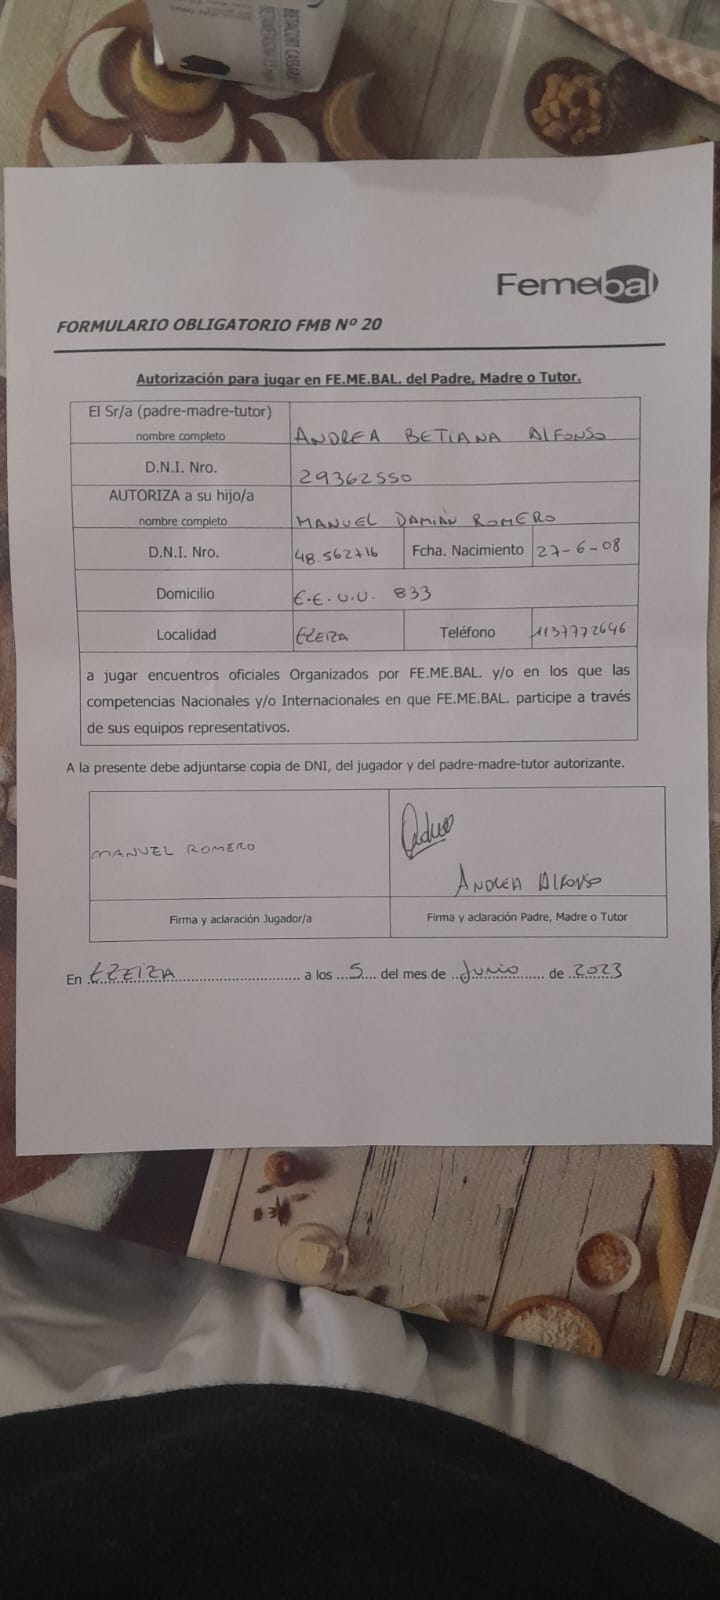 BETACORT CASSARA
Femebal
FORMULARIO OBLIGATORIO FMB Nº 20
Autorización para jugar en FE.ME.BAL. del Padre, Madre o Tutor.
El Sr/a (padre-madre-tutor)
nombre completo ANDREA BETIANA ALFONSO
D.N.I. Nro. 29362550
AUTORIZA a su hijo/a
nombre completo MANUEL DAMIÁN ROMERO
D.N.I. Nro. 48.562716 Fcha. Nacimiento 27-6-08
Domicilio E.E.U.U. 833
Localidad EZEIZA Teléfono 1137772646
a jugar encuentros oficiales Organizados por FE.ME.BAL. y/o en los que las
competencias Nacionales y/o Internacionales en que FE.ME.BAL. participe a través
de sus equipos representativos.
A la presente debe adjuntarse copia de DNI, del jugador y del padre-madre-tutor autorizante.
MANUEL ROMERO
ANDREA ALFONSO
Firma y aclaración Jugador/a Firma y aclaración Padre, Madre o Tutor
En EZEIZA a los 5 del mes de Junio de 2023